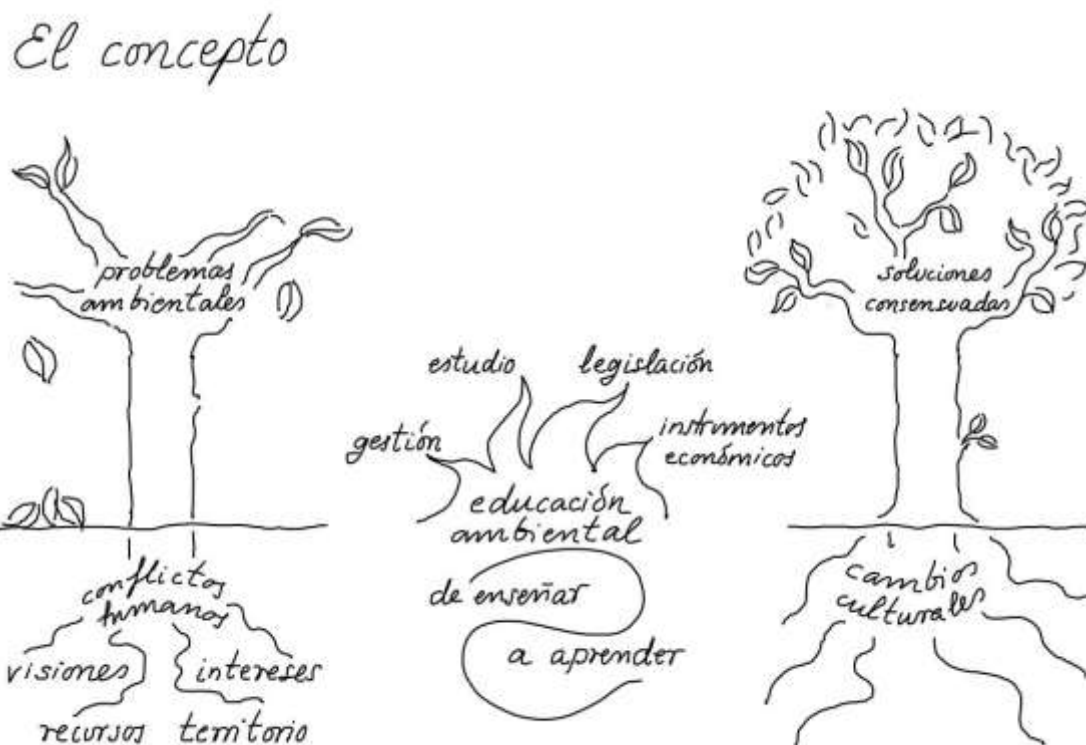 El concepto
problemas
ambientales
conflictos
humanos
visiones
intereses
recursos
territorio
estudio
legislación
gestión
instrumentos
económicos
educación
ambiental
de enseñar
a aprender
soluciones
consensuadas
cambios
culturales